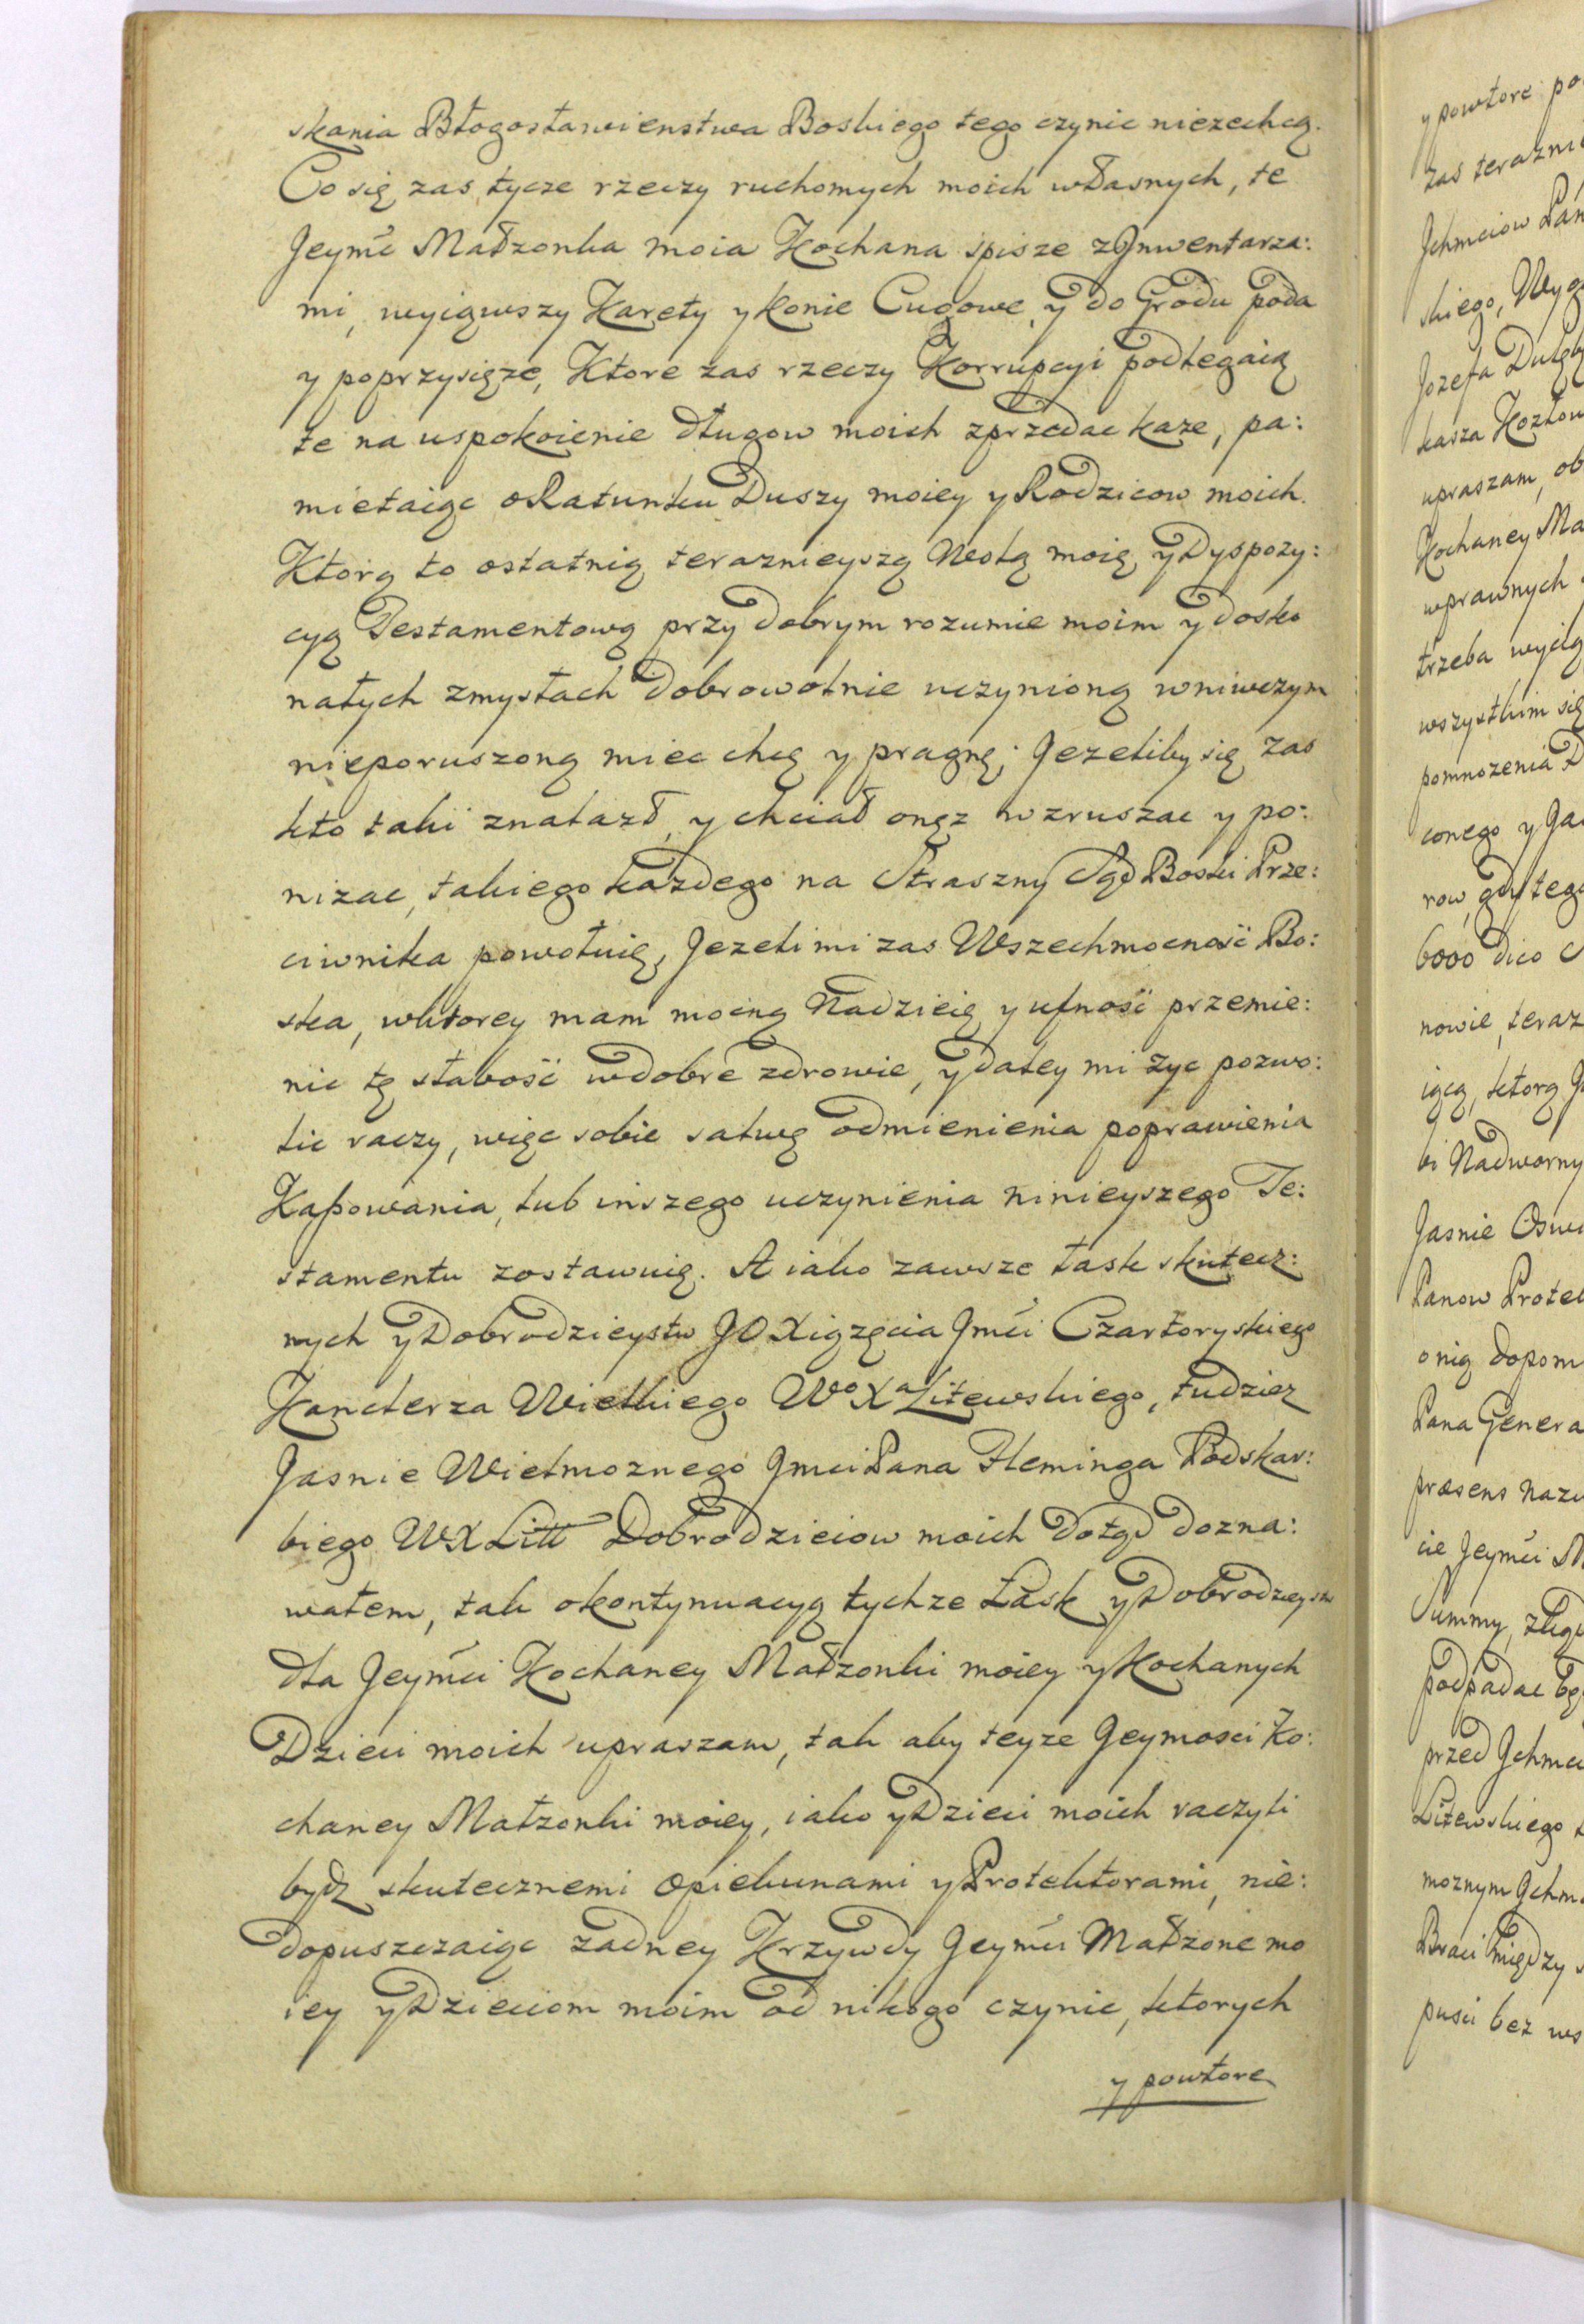 skania Błogosławienstwa Boskiego tego czynic niezechcą.
Co się zas tycze rzeczy ruchomych moich własnych, te
Jeymć Małzonka moia Kochana spisze z Jnwentarza:
mi, wyiąwszy Karety y konie Cugowe, y do Grodu poda
y poprzysięze, Ktore zas rzeczy Korrupcyi podlegaią
te na uspokoienie długow moich zprzedac kaze, pa:
mietaiąc o Ratunku Duszy moiey y Rodzicow moich.
Ktorą to ostatnią teraznieyszą Wolą moię y Dyspozy:
cyą Testamentową przy dobrym rozumie moim y dosko
nałych zmysłach dobrowolnie uczynioną wniwczym
nieporuszoną miec chcę y pragnę; Jezeliby się zas
kto taki znalazł, y chciał onęz wzruszac y po:
nizac, takiego kazdego na Straszny Sąd Boski Prze:
ciwnika powołuię, Jezeli mi zas Wszechmocność Bo:
ska, wktorey mam mocną Nadzieię y ufność przemie:
nic tę słabość w dobre zdrowie, y daley mi zyc pozwo:
lic raczy, więc sobie salwę odmienienia poprawienia
Kaßowania, lub inszego uczynienia ninieyszego Te:
stamentu zostawuię. A iako zawsze łask skutecz:
nych y Dobrodzieystw JO Xiązęcia Jmći Czartoryskiego
Kanclerza Wielkiego Wo Xa Litewskiego, tudziez
Jasnie Wielmoznego Jmci Pana Fleminga Podskar:
biego WX Litt Dobrodzieiow moich dotąd dozna:
wałem, tak o kontynuacyą tychze Łask y Dobrodzieystw
dla Jeymći Kochaney Małzonki moiey y Kochanych
Dzieci moich upraszam, tak aby teyze Jeymosci Ko:
chaney Małzonki moiey, iako y Dzieci moich raczyli
bydz skutecznemi Opiekunami y Protektorami, nie:
dopuszczaiąc zadney Krzywdy Jeymći Małzonc mo
iey y Dzieciom moim od nikogo czynic, ktorych
y powtore
y powtore
zas teraznie
Jchmciow Pan
skiego, Wyg
Jozefa
kasza Kozłow
upraszam, ob
Kochaney Ma
wprawnych
trzeba wycią
wszystkim się
pomnozenia D
conego y
row, gdy tego
6000 dico
nowie, teraz
iącą, ktorą
bi Nadworny
Jasnie Oswi
Panow Protek
o nią dopom
Pana Genera
præsens
cie Jeymći M
Summy,
podpadac bę
przed Jchmci
Litewskiego
moznym Jchm
Braci między
pusci bez ws